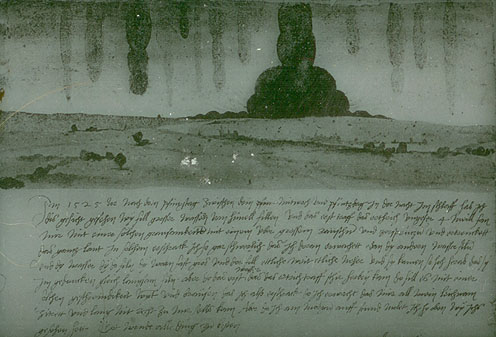 Im 1525 Jor nach dem pfinxstag zwischen dem mitwoch und pfintzdag in der nacht im schlaff hab ich
dis gesicht gesehen wy fill grosser wassern vom himell fillen Und das erst traff das erthrich ungefer 4 meill fan
mir mit einer solchen grausamkeitt mit einem uber grossem raüschn und zersprützn und ertrenckett
das gantz lant In solchem erschrack ich so gar schwerlich das ich doran erwachett e dan dy andern wasser filn
Und dy wasser dy do filn dy warn fast gros und der fill ettliche weit etliche neher und sy kamen so hoch herab das sy
im gedancken gleich langsam filn aber do das erst wasser das das ertrich traff schir herbey kam do fill es mit einer
solchen geschwindikeit wynt und braüsen das ich also erschrack do ich erwacht das mir all mein leichnam
zitrett und lang nit recht zu mir selbs kam Aber do ich am morgn auff stund molet ich hy oben wy ichs
gesehen hett Got wende alle ding zu besten